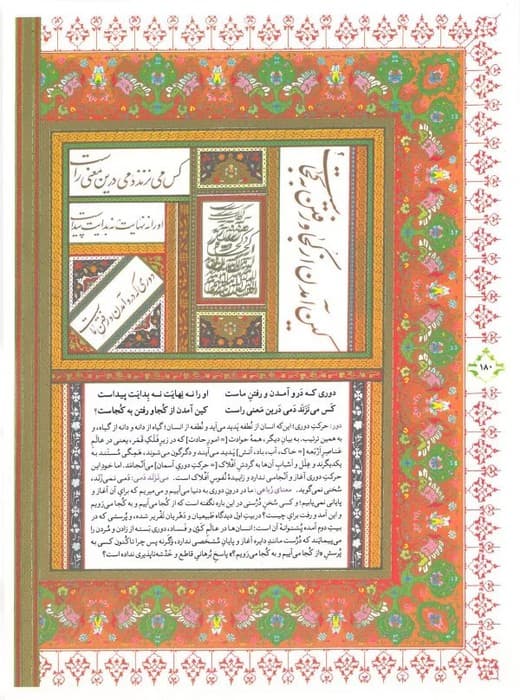 کس می نزند دمی درین معنی راست
او را نه نهایت نه بدایت پیداست
دوری که درو آمدن و رفتن ماست
کین آمدن از کجا و رفتن به کجاست
۱۸۰
دوری کـه دَرو آمـدن و رفتنِ ماست او را نـه نهایَت نـه بِدایَت پیـداست
کَس می‌نَزَند دَمی دَرین مَعنی راست کین آمدن از کُجا و رفتن به کُجاست؟
دور: حرکتِ دَوری؛ این‌که انسان از نُطفه پَدید می‌آید و نُطفه از انسان؛ گیاه از دانه و دانه از گیاه، و
به همین ترتیب. به بیانِ دیگر، همهٔ حوادث [= امورِ حادث] که در زیرِ فَلَکِ قَمَر، یعنی در عالَمِ
عَناصِرِ اَربَعه [= خاک، آب، باد، آتش] پَدید می‌آیند و دگرگون می‌شوند، همگی مُستَند به
یکدیگرند و عِلَل و اَسبابِ آن‌ها به گردشِ اَفلاک [= حرکتِ دَوریِ آسمان] می‌اَنجامَد. اما خودِ این
حرکتِ دَوری آغاز و اَنجامی ندارد و زاییدهٔ نُفوسِ اَفلاک است. می‌نَزَند دَمی: دَمی نمی‌زند،
سُخنی نمی‌گوید. معنای رُباعی: ما در درونِ دَوری به دنیا می‌آییم و می‌میریم که برای آن آغاز و
پایانی نمی‌یابیم؛ و کسی سُخنِ دُرُستی در این باره نگفته است که از کُجا می‌آییم و به کُجا می‌رویم
و این آمد و رفت برای چیست؟ در بیتِ اول دیدگاهِ طَبیعیان و دَهریان تَقریر شده، و پُرسشی که در
بیتِ دوم آمده پُشتوانهٔ آن است؛ انسان‌ها در عالَمِ کَون و فَساد، دَوری بَسته از زادن و مُردن را
می‌پیمایند که دُرُست مانندِ دایره آغاز و پایانِ مُشَخَّصی ندارد، وگرنه پس چرا تاکُنون کسی به
پُرسشِ «از کُجا می‌آییم و به کُجا می‌رویم؟» پاسخِ بُرهانیِ قاطع و خَدشه‌ناپذیری نداده است؟